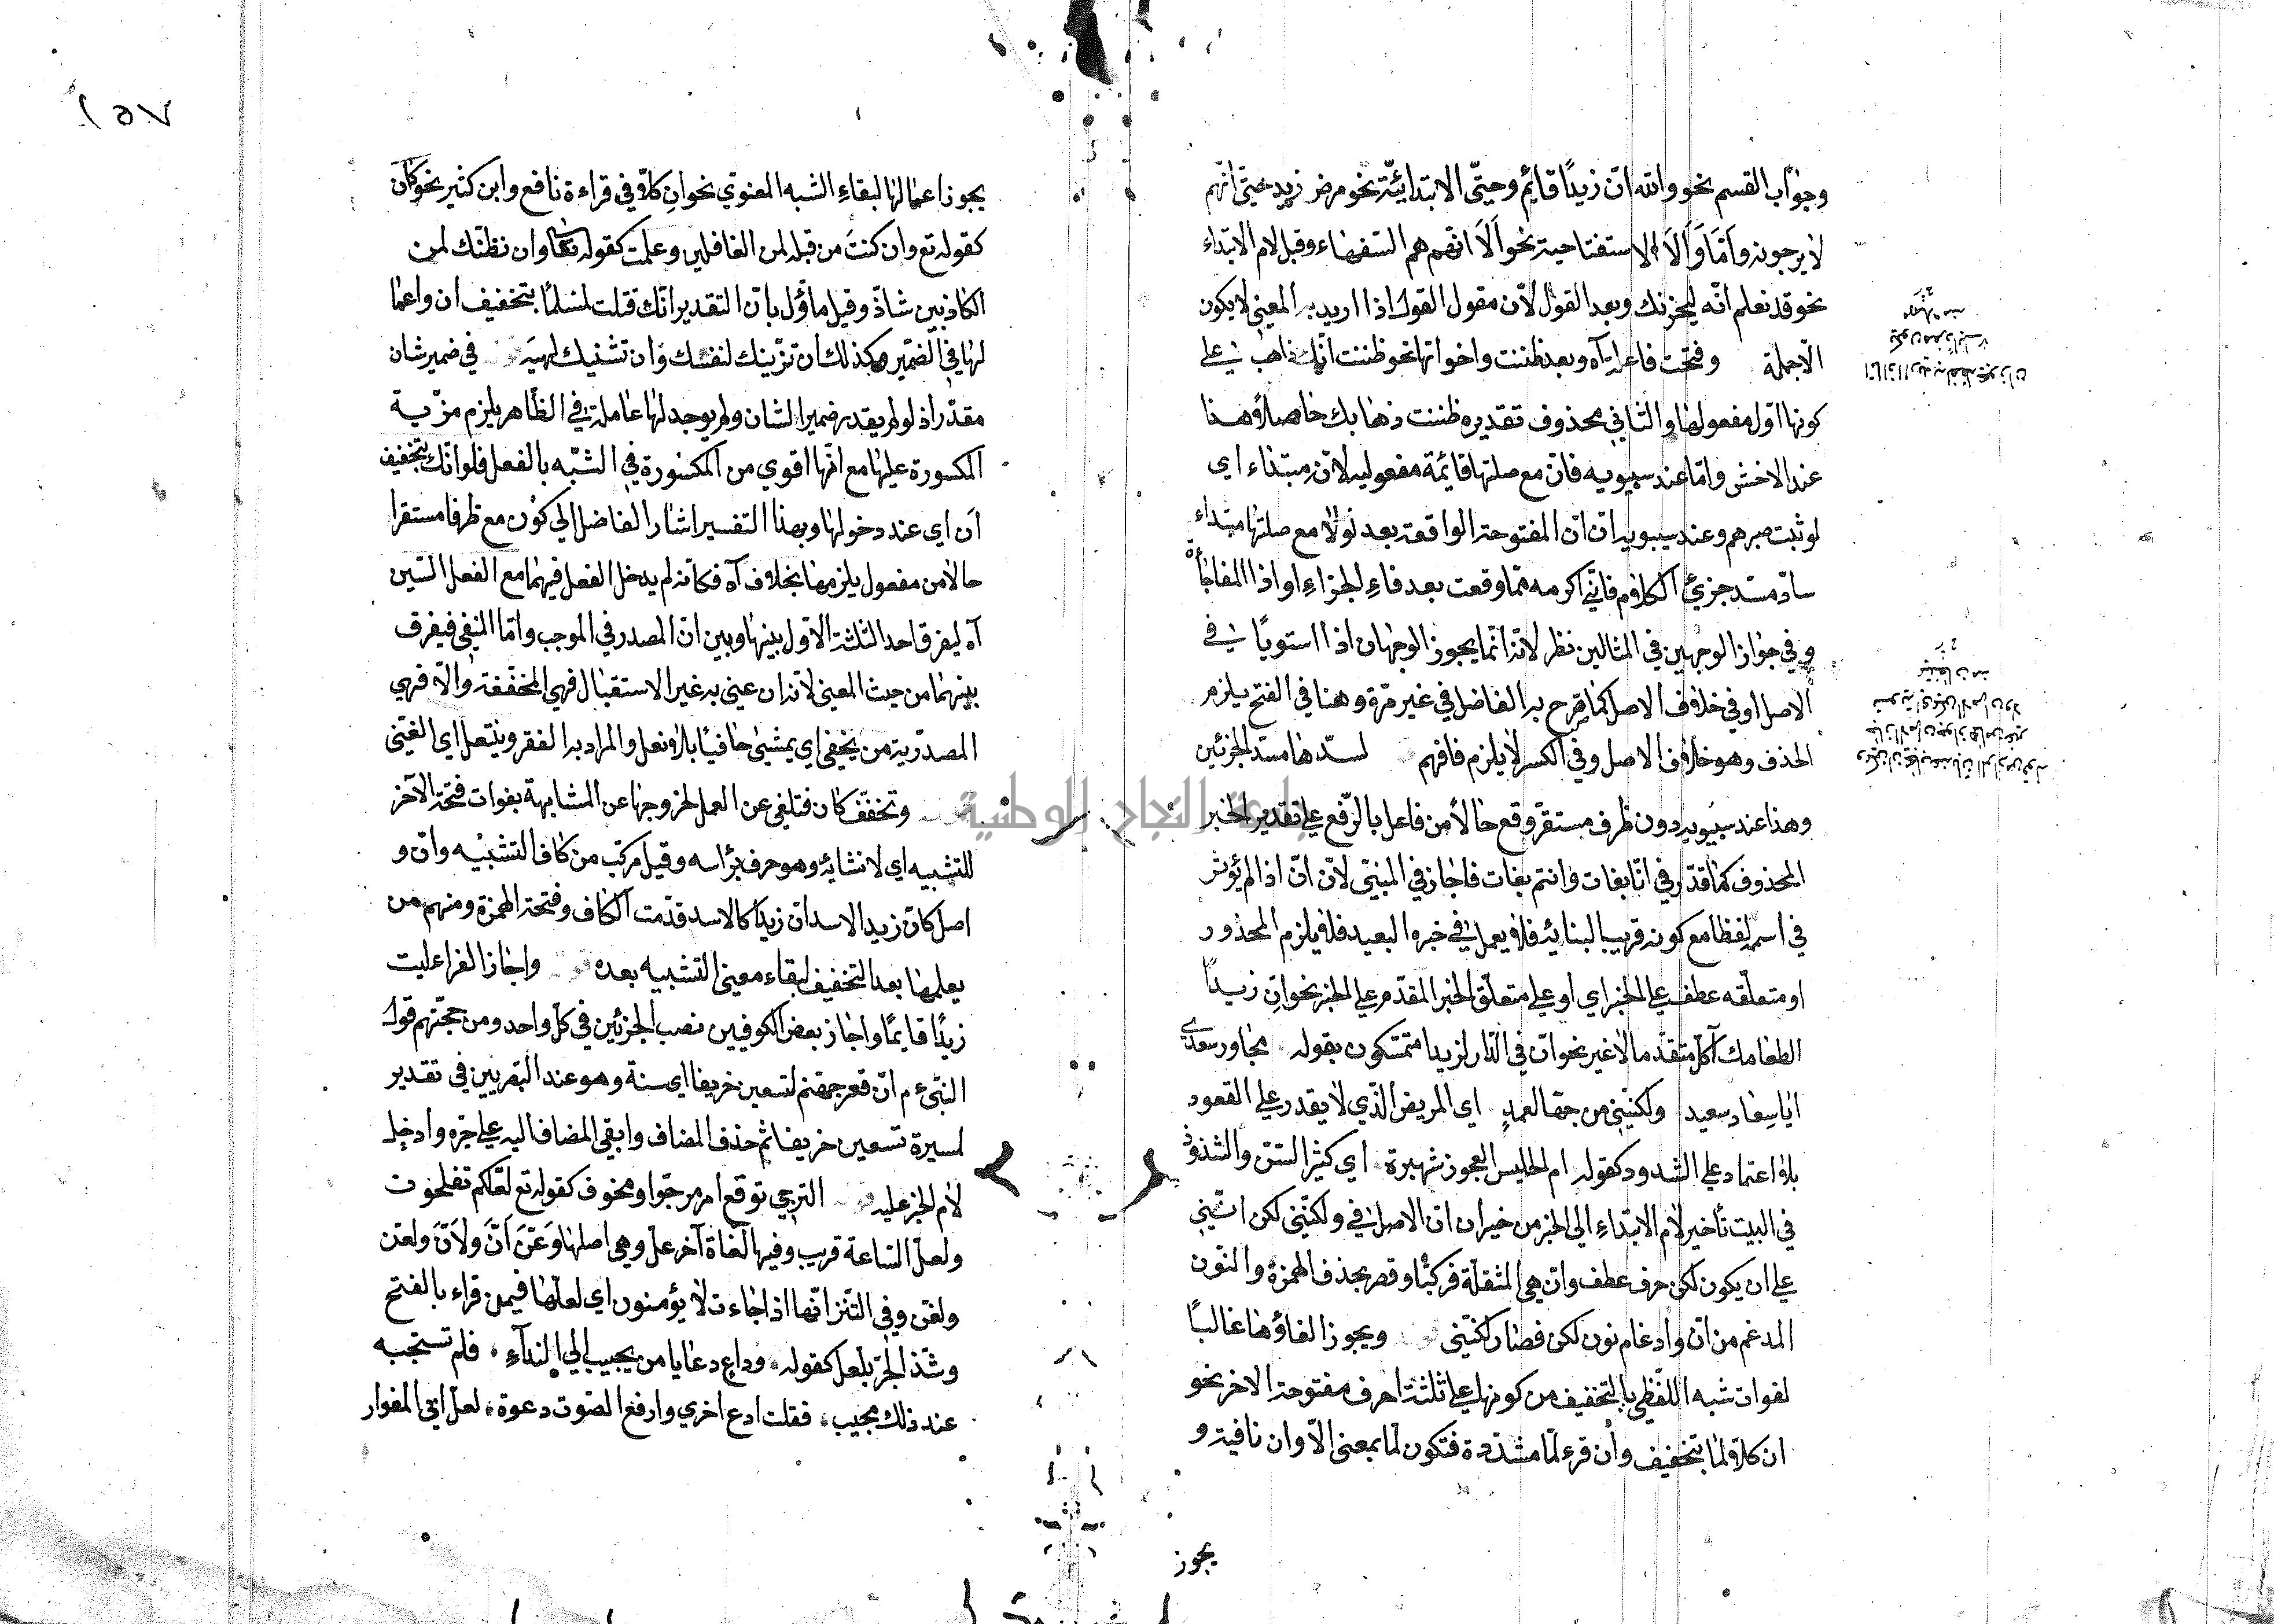 وجواب القسم نحو والله انّ زيدًا قايم وحتّى الابتدائيّة نحو مرض زيد حتّى انّهم
لا يرجونه وأمَا وَألَا الاستفتاحية نحو ألَا انّهم هم السّفهاء وقبل لام الابتداء
نحو قد نعلم انّه ليحزنك وبعد القول لأن مقول القول اذا اريد به المعنى لا يكون
الّا جملة وفتحت فاعلة آه وبعد ظننت واخواتها نحو ظننت انّك ذاهب على
كونها اوّل مفعولها والثاني محذوف تقديره ظننت ذهابك حاصلًا وهذا
عند الاخفش وامّا عند سيبويه فانّ مع صلتها قائمة مفعوليه لأنّ مبتداء اى
لو ثبت صبرهم وعند سيبويه انّ انّ المفتوحة الواقعة بعد لولا مع صلتها مبتداء
سادّ مسدّ جزئي الكلام فانّي اكرمه ممّا وقعت بعد فاء الجزاء او اذا المفاجأة
وفي جواز الوجهين في المثالين نظر لأنّه انّما يجوز الوجهان اذا استويا في
الاصل او في خلاف الاصل كما صرح به الفاضل في غير مرّة وهنا في الفتح يلزم
الحذف وهو خلاف الاصل وفي الكسر لا يلزم فافهم لسدّها مسدّ الجزئين
وهذا عند سيبويه دون ظرف مستقر وقع حالًا من فاعل بالرّفع على تقدير الخبر
المحذوف كما قدّر في انّا بغات وانتم بغات فاجاز في المبنى لأن انّ اذا لم يؤثر
في اسم لفظا مع كونه قريبا لبنائه فلا يعمل في خبره البعيد فلا يلزم المحذور
او متعلّقه عطف على الخبر اي او على متعلّق الخبر المقدّم على الخبر نحو انّ زيدًا
لطعامك آكل متقدّما لا غير نحو انّ في الدّار لزيدا متمسّكون بقوله مجاور سعدى
ايا سعاد سعيد ولكنّني من حبّها لعميد اي المريض الّذي لا يقدر على القعود
بلا اعتماد على الشذوذ كقوله ام الحليس لعجوز شهبرة اي كثير السّنّ والشذوذ
في البيت تأخير لام الابتداء الى الخبر من خبر ان انّ الاصل في ولكنّني لكن انّني
على ان يكون لكن حرف عطف وانّ هي المثقلة فركّبا وقصر بحذف الهمزة والنّون
المدغم من انّ وادغام نون لكن فصار لكنّني ويجوز الغاؤها غالبًا
لفوات شبه اللّفظي بالتخفيف من كونها على ثلثة احرف مفتوحة الاخر نحو
ان كلّا لما بتخفيف وان قرء لمّا مشدّدة فتكون لمّا بمعنى الّا وان نافية و
يجوز
١٥٧
يجوز اعمالها لبقاء الشبه المعنوي نحو ان كلّا في قراءة نافع وابن كثير نحو كان
كقوله تع وان كنتَ من قبله لمن الغافلين وعلمت كقوله تعا وان نظنّك لمن
الكاذبين شاذّ وقيل مأوّل بانّ التقدير انّك قتلت لمسلمًا بتخفيف ان واعما
لها في الضّمير وكذلك ان تزينك لنفسك وان تشنيك لهيه في ضمير شان
مقدّر اذ لو لم يقدر ضمير الشان ولم يوجد لها عاملة في الظاهر يلزم مزّية
المكسورة عليها مع انّها اقوي من المكسورة في الشّبه بالفعل فلو انّك بتخفيف
اَن اي عند دخولها وبهذا التفسير اشار الفاضل الى كون مع ظرفا مستقرا
حالًا من مفعول يلزمها بخلاف آه فكانّه لم يدخل الفعل فيهما مع الفعل السّين
آه ليفرق احد الثلثة الاوّل بينها وبين ان المصدر في الموجب وامّا المنفي فيفرق
بينهما من حيث المعنى لأنّه ان عنى به غير الاستقبال فهي المخفّفة والّا فهي
المصدّرية من يخفى اي يمشى حافيًا بلا نعل والمراد به الفقر وينتعل اي الغنى
وتخفّف كان فتلغى عن العمل لخروجها عن المشابهة بفوات فتحة الآخر
للتشبيه اي لانشائه وهو حرف برأسه وقيل مركّب من كاف التشبيه وانّ و
اصل كانّ زيد الاسد انّ زيدًا كالاسد قدّمت الكاف وفتحة الهمزة ومنهم من
يعلمها بعد التخفيف لبقاء معنى التشبيه بعده واجاز الفرا عليت
زيدًا قايمًا واجاز بعض الكوفيين نصب الجزئين في كلّ واحد ومن حجّتهم قول
النبيّ ءم انّ قعر جهنم لتسعين خريفا اي سنة وهو عند البصريين في تقدير
لمسيرة تسعين خريفا ثم حذف المضاف وابقى المضاف اليه على جرّه وادخل
لام الخبر عليه الترجي توقع امر مرجّوا ومخوف كقوله تع لعلّكم تفلحون
ولعلّ السّاعة قريب وفيها لغاة آخر علّ وهي اصلها وعَنّ أنّ ولأنّ ولعن
ولغن وفي التّنز انّها اذا جاءت لا يؤمنون اي لعلّها فيمن قراء بالفتح
وشذ الجرّ بلعل كقوله وداع دعا يا من يجيب الى النداء فلم تستجبه
عند ذلك مجيب فقلت ادع اخرى وارفع الصّوت دعوة لعل ابي المغوار
جامعة النجاح الوطنية